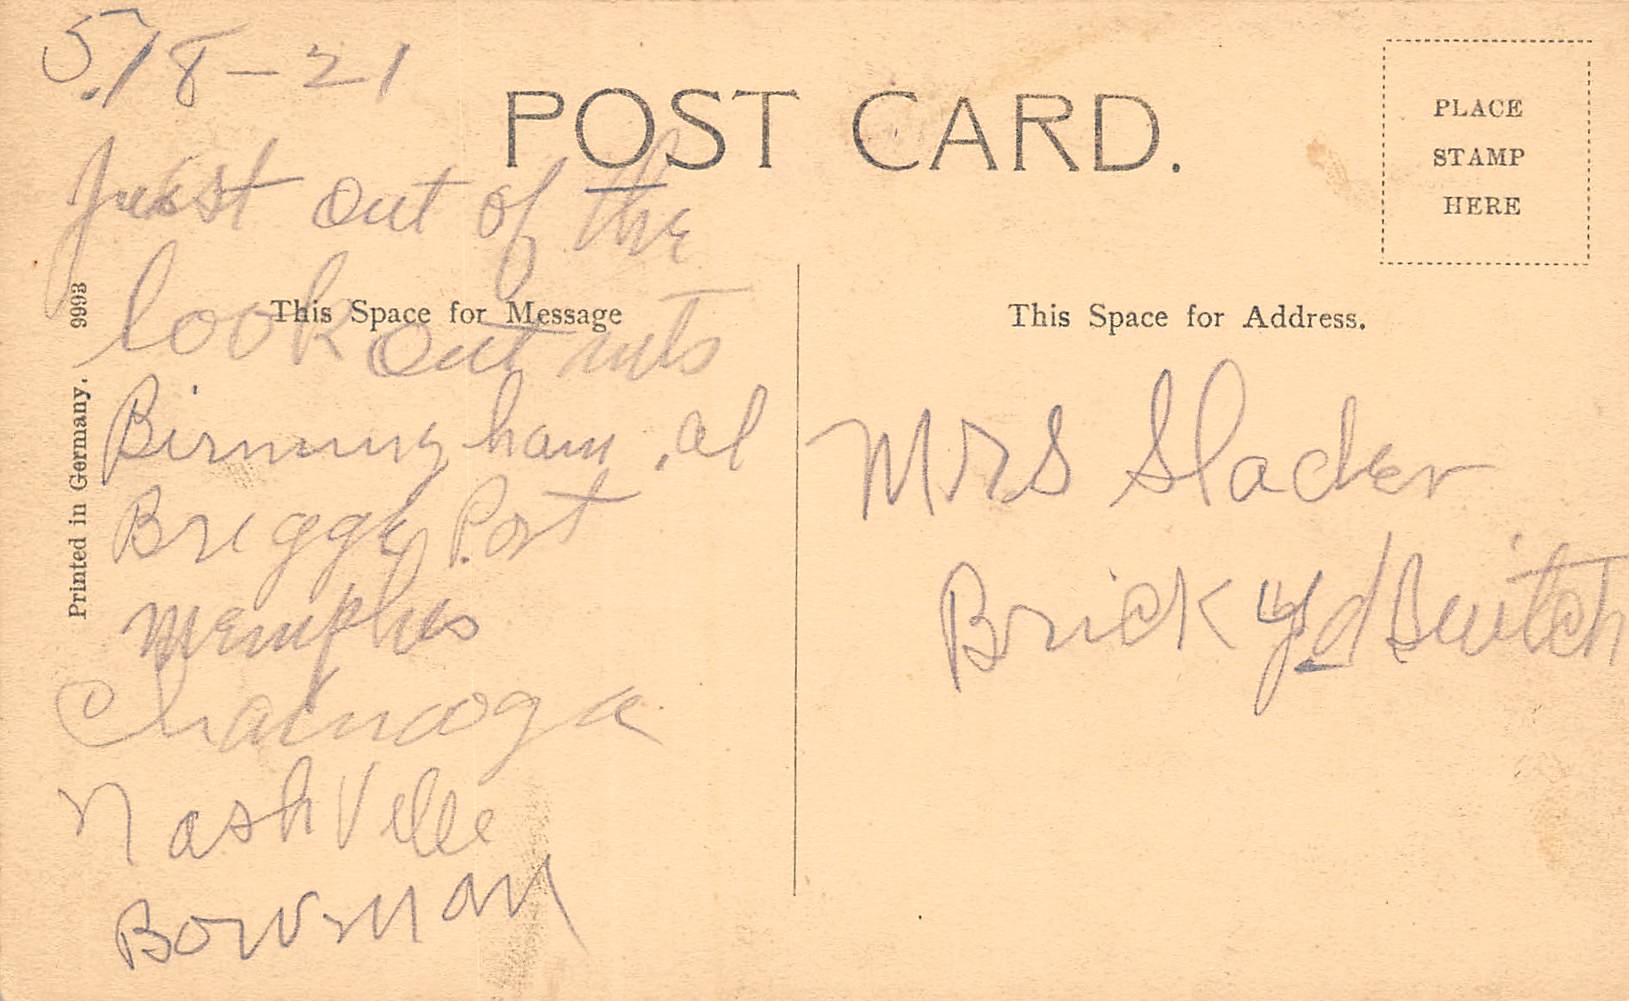 5/8-21
POST CARD.
PLACE
STAMP
HERE
Just out of the
look out mts
This Space for Message
This Space for Address.
Birmingham, al
Bregge Port
Memphis
Chatnooga
NashVille
Bowman
Mrs Slader
Brick yd Switch
Printed in Germany. 9993